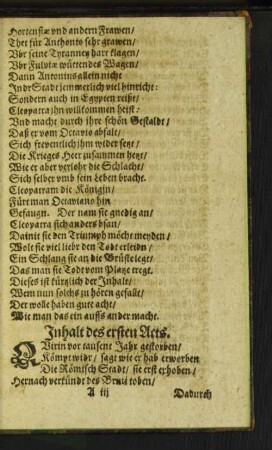 Hortensiæ vnd andern Frawen/
Thet für Anthonio sehr grawen/
Vbr seine Tyranney hart klagen/
Vbr Fulviæ wütendes Wagen/
Dann Antonius allein nicht
In dr Stadt jemmerlich viel hinricht:
Sondern auch in Egypten reist/
Cleopatra jhn willkommen heist:
Vnd macht durch jhre schön Gestaldt/
Daß er vom Octavio abfalt/
Sich freventlich jhm wider setzt/
Die Krieges Heer zusammen hetzt/
Wie er aber verlohr die Schlacht/
Sich selber vmb sein Leben bracht.
Cleopatram die Königin/
Fürt man Octaviano hin
Gefangn. Der nam sie gnedig an/
Cleopatra sich anders bsan/
Damit sie den Triumph möcht meyden/
Wolt sie viel liebr den Todt erleidn/
Ein Schlang sie an die Brüste legt/
Das man sie Todt vom Platze tregt.
Dieses ist kürtzlich der Inhalt/
Wem nun solchs zu hören gefallt/
Der wolle haben gute acht/
Wie man das ein auffs ander macht.
Inhalt des ersten Acts.
QVirin vor tausent Jahr gestorben/
Kömpt widr/ sagt wie er hab erworben
Die Römisch Stadt/ sie erst erhoben/
Hernach verkündt des Bruti toben/
A iij Dadurch